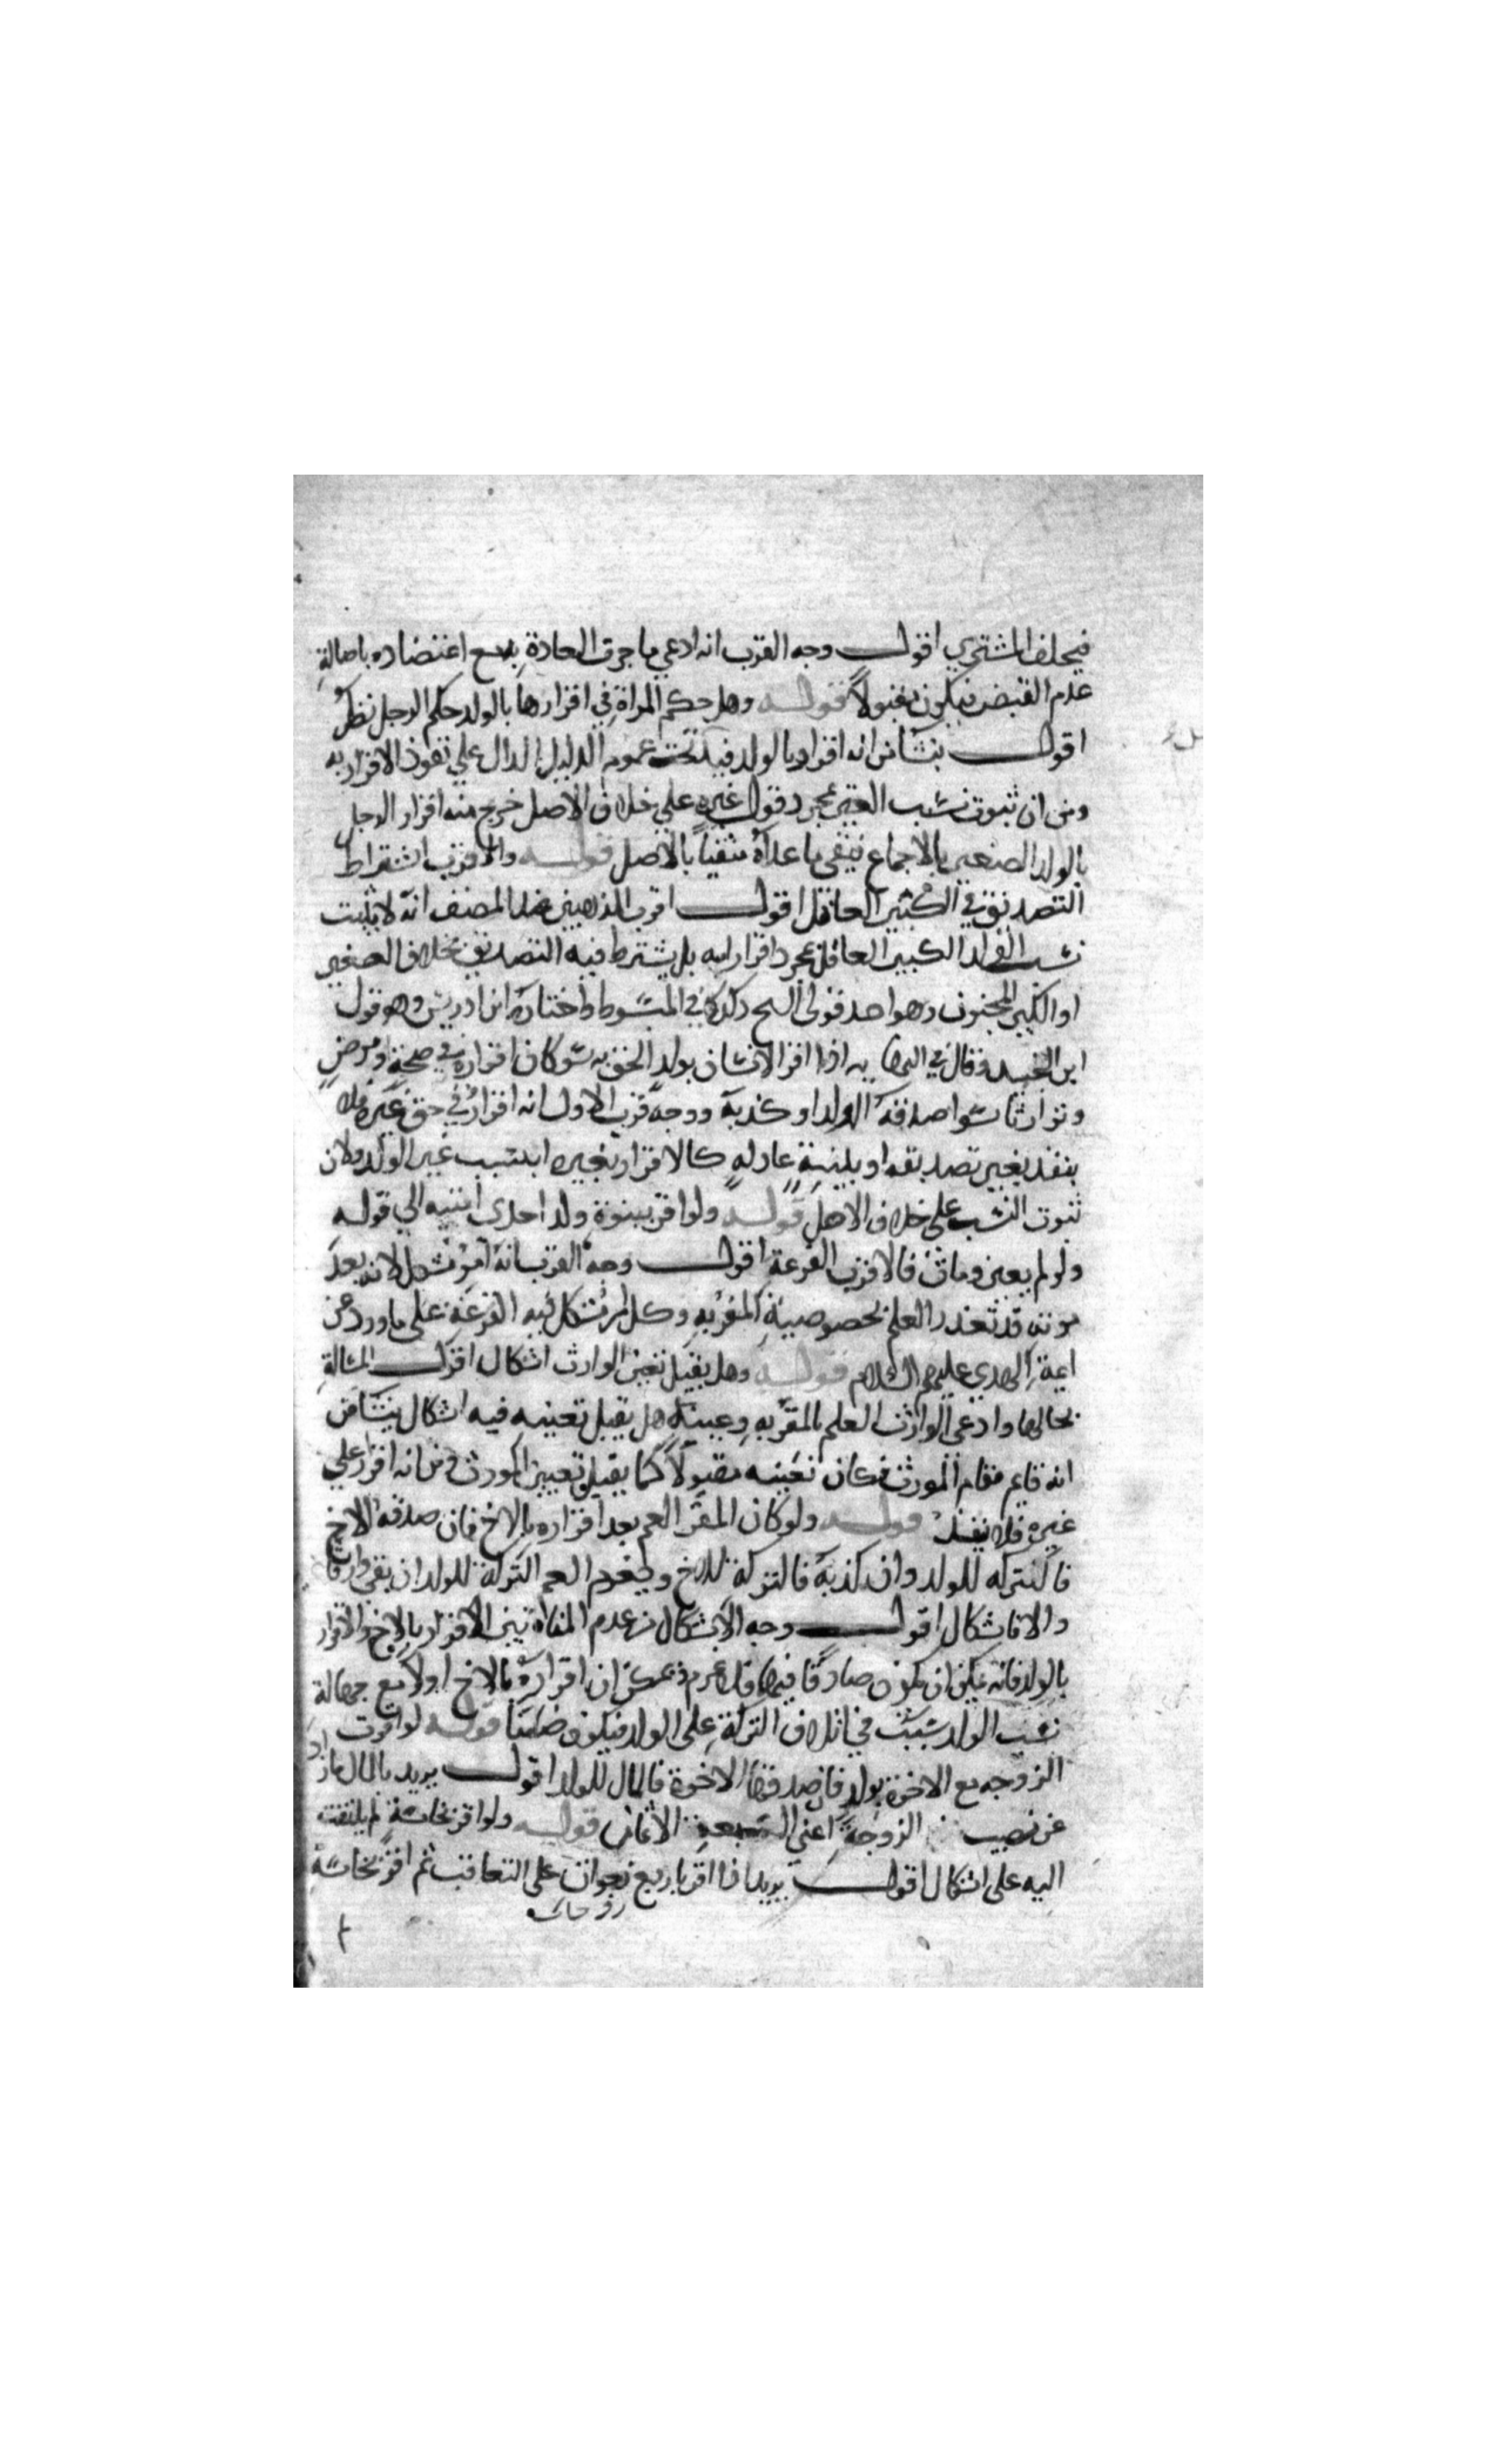 فيحلف المشتري اقول وجه القرب انه ادعي ما جرت العادة به مع اعتضاده باصالة
عدم القبض فيكون مقبولاً قوله وهل حكم المراة في اقرارها بالولد حكم الرجل نظرٌ
اقول ينشأ من انه اقرار بالولد فيدخل تحت عموم الدليل الدال علي نفوذ الاقرار به
ومن ان ثبوت نسب الغير بمجرد قول غيره علي خلاف الاصل خرج منه اقرار الرجل
بالولد الصغير بالاجماع فيبقي ما عداه منفياً بالاصل قوله والاقرب اشتراط
التصديق في الكبير العاقل اقول اقرب المذهبين عند المصنف انه لا يثبت
نسب الولد الكبير العاقل بمجرد اقرار ابيه بل يشترط فيه التصديق بخلاف الصغير
او الكبير المجنون وهو احد قولي الشيخ ذكره في المبسوط واختاره ابن ادريس وهو قول
ابن الجنيد وقال في النهاية اذا اقر الانسان بولد الحق به سوا كان اقراره في صحة او مرض
وتوارثا سوا صدقه الولد او كذبه ووجه قرب الاول انه اقرارٌ في حق غيره فلا
ينفذ بغير تصديقه او ببينةٍ عادلهٍ كالاقرار بغيره اي بنسب غير الولد ولان
ثبوت النسب على خلاف الاصل قوله ولو اقر ببنوة ولد احدى امتيه الي قوله
ولو لم يعين ومات فالاقرب القرعة اقول وجه القرب انه امرٌ مشكل لانه بعد
موته قد تعذر العلم بخصوصية المقر به وكل امر مشكل فيه القرعة على ما ورد عن
ايمة الهدي عليهم السلام قوله وهل يقبل تعيين الوارث اشكال اقول المسالة
بحالها وادعى الوارث العلم بالمقر به وعينه هل يقبل تعيينه فيه اشكال ينشأ من
انه قايم مقام المورث فكان تعيينه مقبولاً كما يقبل تعيين المورث ومن انه اقرار علي
غيره فلا ينفذ قوله ولو كان المقر العم بعد اقراره بالاخ فان صدقه الاخ
فالتركه للولد وان كذبه فالتركة للاخ ويغرم العم التركة للولد ان نفي وارثا
والا فاشكال اقول وجه الاشكال من عدم المنافاة بين الاقرار بالاخ والاقرار
بالولد فانه يمكن ان يكون صادقا فيهما فلا غرم ومن ان اقراره بالاخ اولا مع جهالة
نسب الولد سبب في اتلاف التركة على الولد فيكون ضامنا قوله لو اقرت
الزوجه مع الاخوة بولد فان صدقها الاخوة فالمال للولد اقول يريد بالمال ما زاد
عن نصيب الزوجة اعني السبعة الاثمان قوله ولو اقر بخامسة لم يلتفت
اليه على اشكال اقول يريد اذا اقر باربع زوجات على التعاقب ثم اقر بخامسة
زوجات